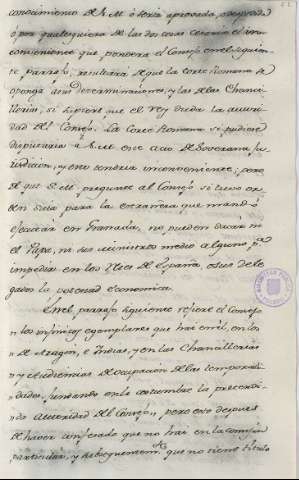 conocimiento de S.M. ó seria aprovada, ó reprovada
ó por qualesquiera de las dos cosas cesaria el in
conveniente que pondera el Consejo en el siguien
te parrafo, resultará de que la Corte Romana se
oponga á sus determinaciones, y las de las Chanci
llerias, si supiere que el Rey duda la autori
dad del Consejo. La Corte Romana si pudiese
disputaria á S.M. este acto de Soverana ju
risdiccion, y esto tendria inconveniente; pero
de que S.M. pregunte al Consejo si tuvo or
den suia para la estrañeza que mandó
ejecutar en Granada, no pueden sacar ni
el Papa, ni sus ministros medio alguno pª
impedir en los Reies de España, ó sus dele
gados la potestad economica.
En el parrafo siguiente refiere el Consejo
" los infinitos egemplares que hai en el, en los
" de Aragon, é Indias, y en las Chancillerias
" y Audiencias de ocupacion de las temporali
" dades, fundando en la costumbre la
" autoridad del Consejo, pero esto despues
de haver confesado que no hai en la
particular, y que no tiene titulo